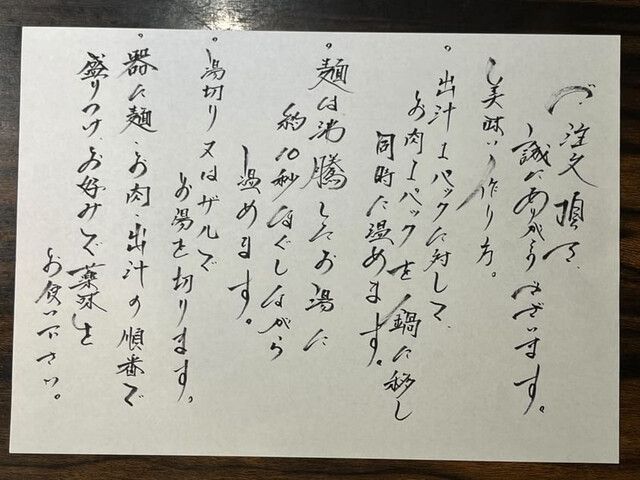 ご注文頂き
誠にありがとうございます。
美味しい作り方。
。出汁1パックに対して、
お肉1パックを鍋に移し
同時に温めます。
。麺は沸騰したお湯に
約10秒ほぐしながら
温めます。
。湯切り又はザルで
お湯を切ります。
。器に麺、お肉、出汁の順番で
盛りつけ、お好みで薬味を
お使い下さい。